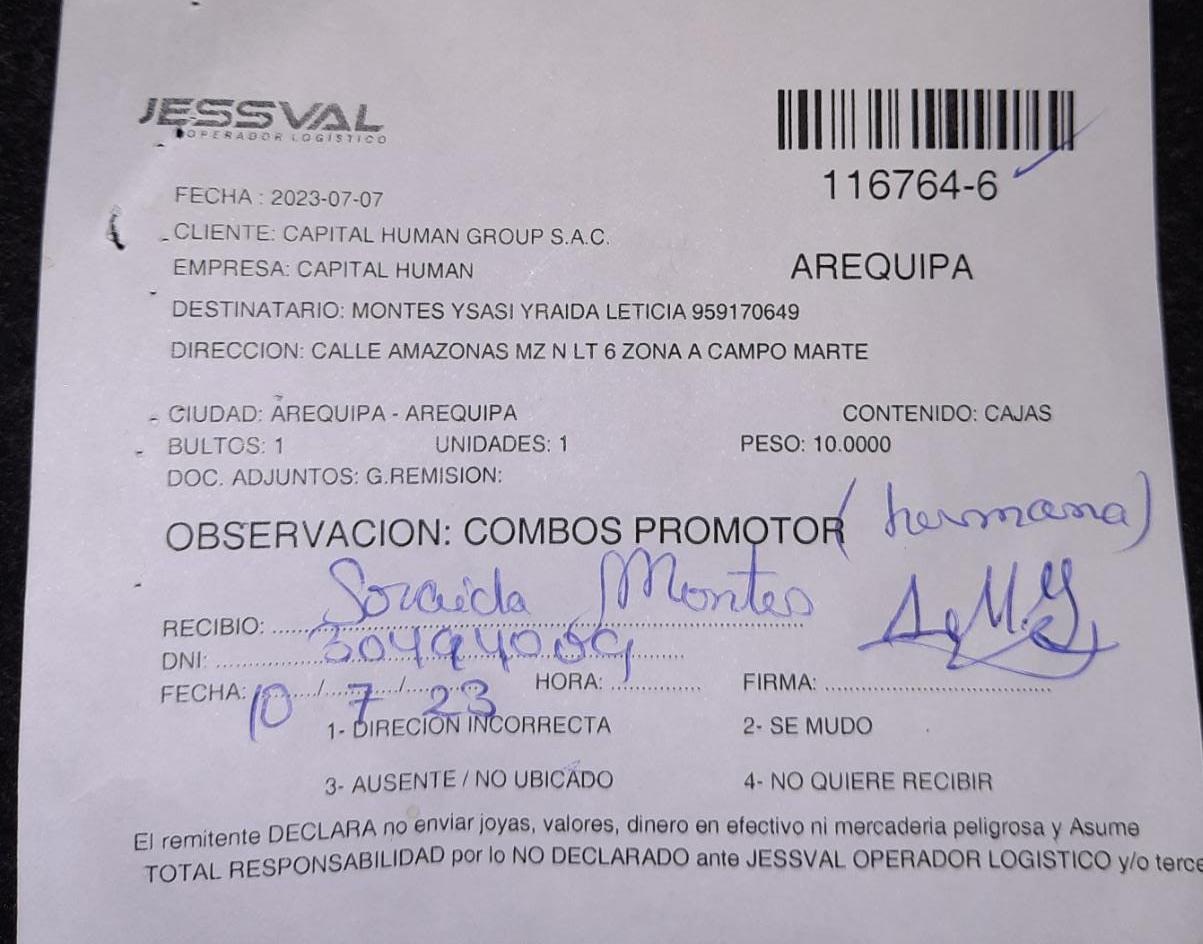 JESSVAL
OPERADOR LOGÍSTICO
116764-6
FECHA : 2023-07-07
CLIENTE: CAPITAL HUMAN GROUP S.A.C.
EMPRESA: CAPITAL HUMAN
AREQUIPA
DESTINATARIO: MONTES YSASI YRAIDA LETICIA 959170649
DIRECCION: CALLE AMAZONAS MZ N LT 6 ZONA A CAMPO MARTE
CIUDAD: AREQUIPA - AREQUIPA CONTENIDO: CAJAS
BULTOS: 1 UNIDADES: 1 PESO: 10.0000
DOC. ADJUNTOS: G.REMISION:
OBSERVACION: COMBOS PROMOTOR (hermana)
RECIBIO: Soraida Montes
DNI: 30494009
FECHA: 10/7/23 HORA: FIRMA:
1- DIRECION INCORRECTA 2- SE MUDO
3- AUSENTE / NO UBICADO 4- NO QUIERE RECIBIR
El remitente DECLARA no enviar joyas, valores, dinero en efectivo ni mercaderia peligrosa y Asume
TOTAL RESPONSABILIDAD por lo NO DECLARADO ante JESSVAL OPERADOR LOGISTICO y/o terce